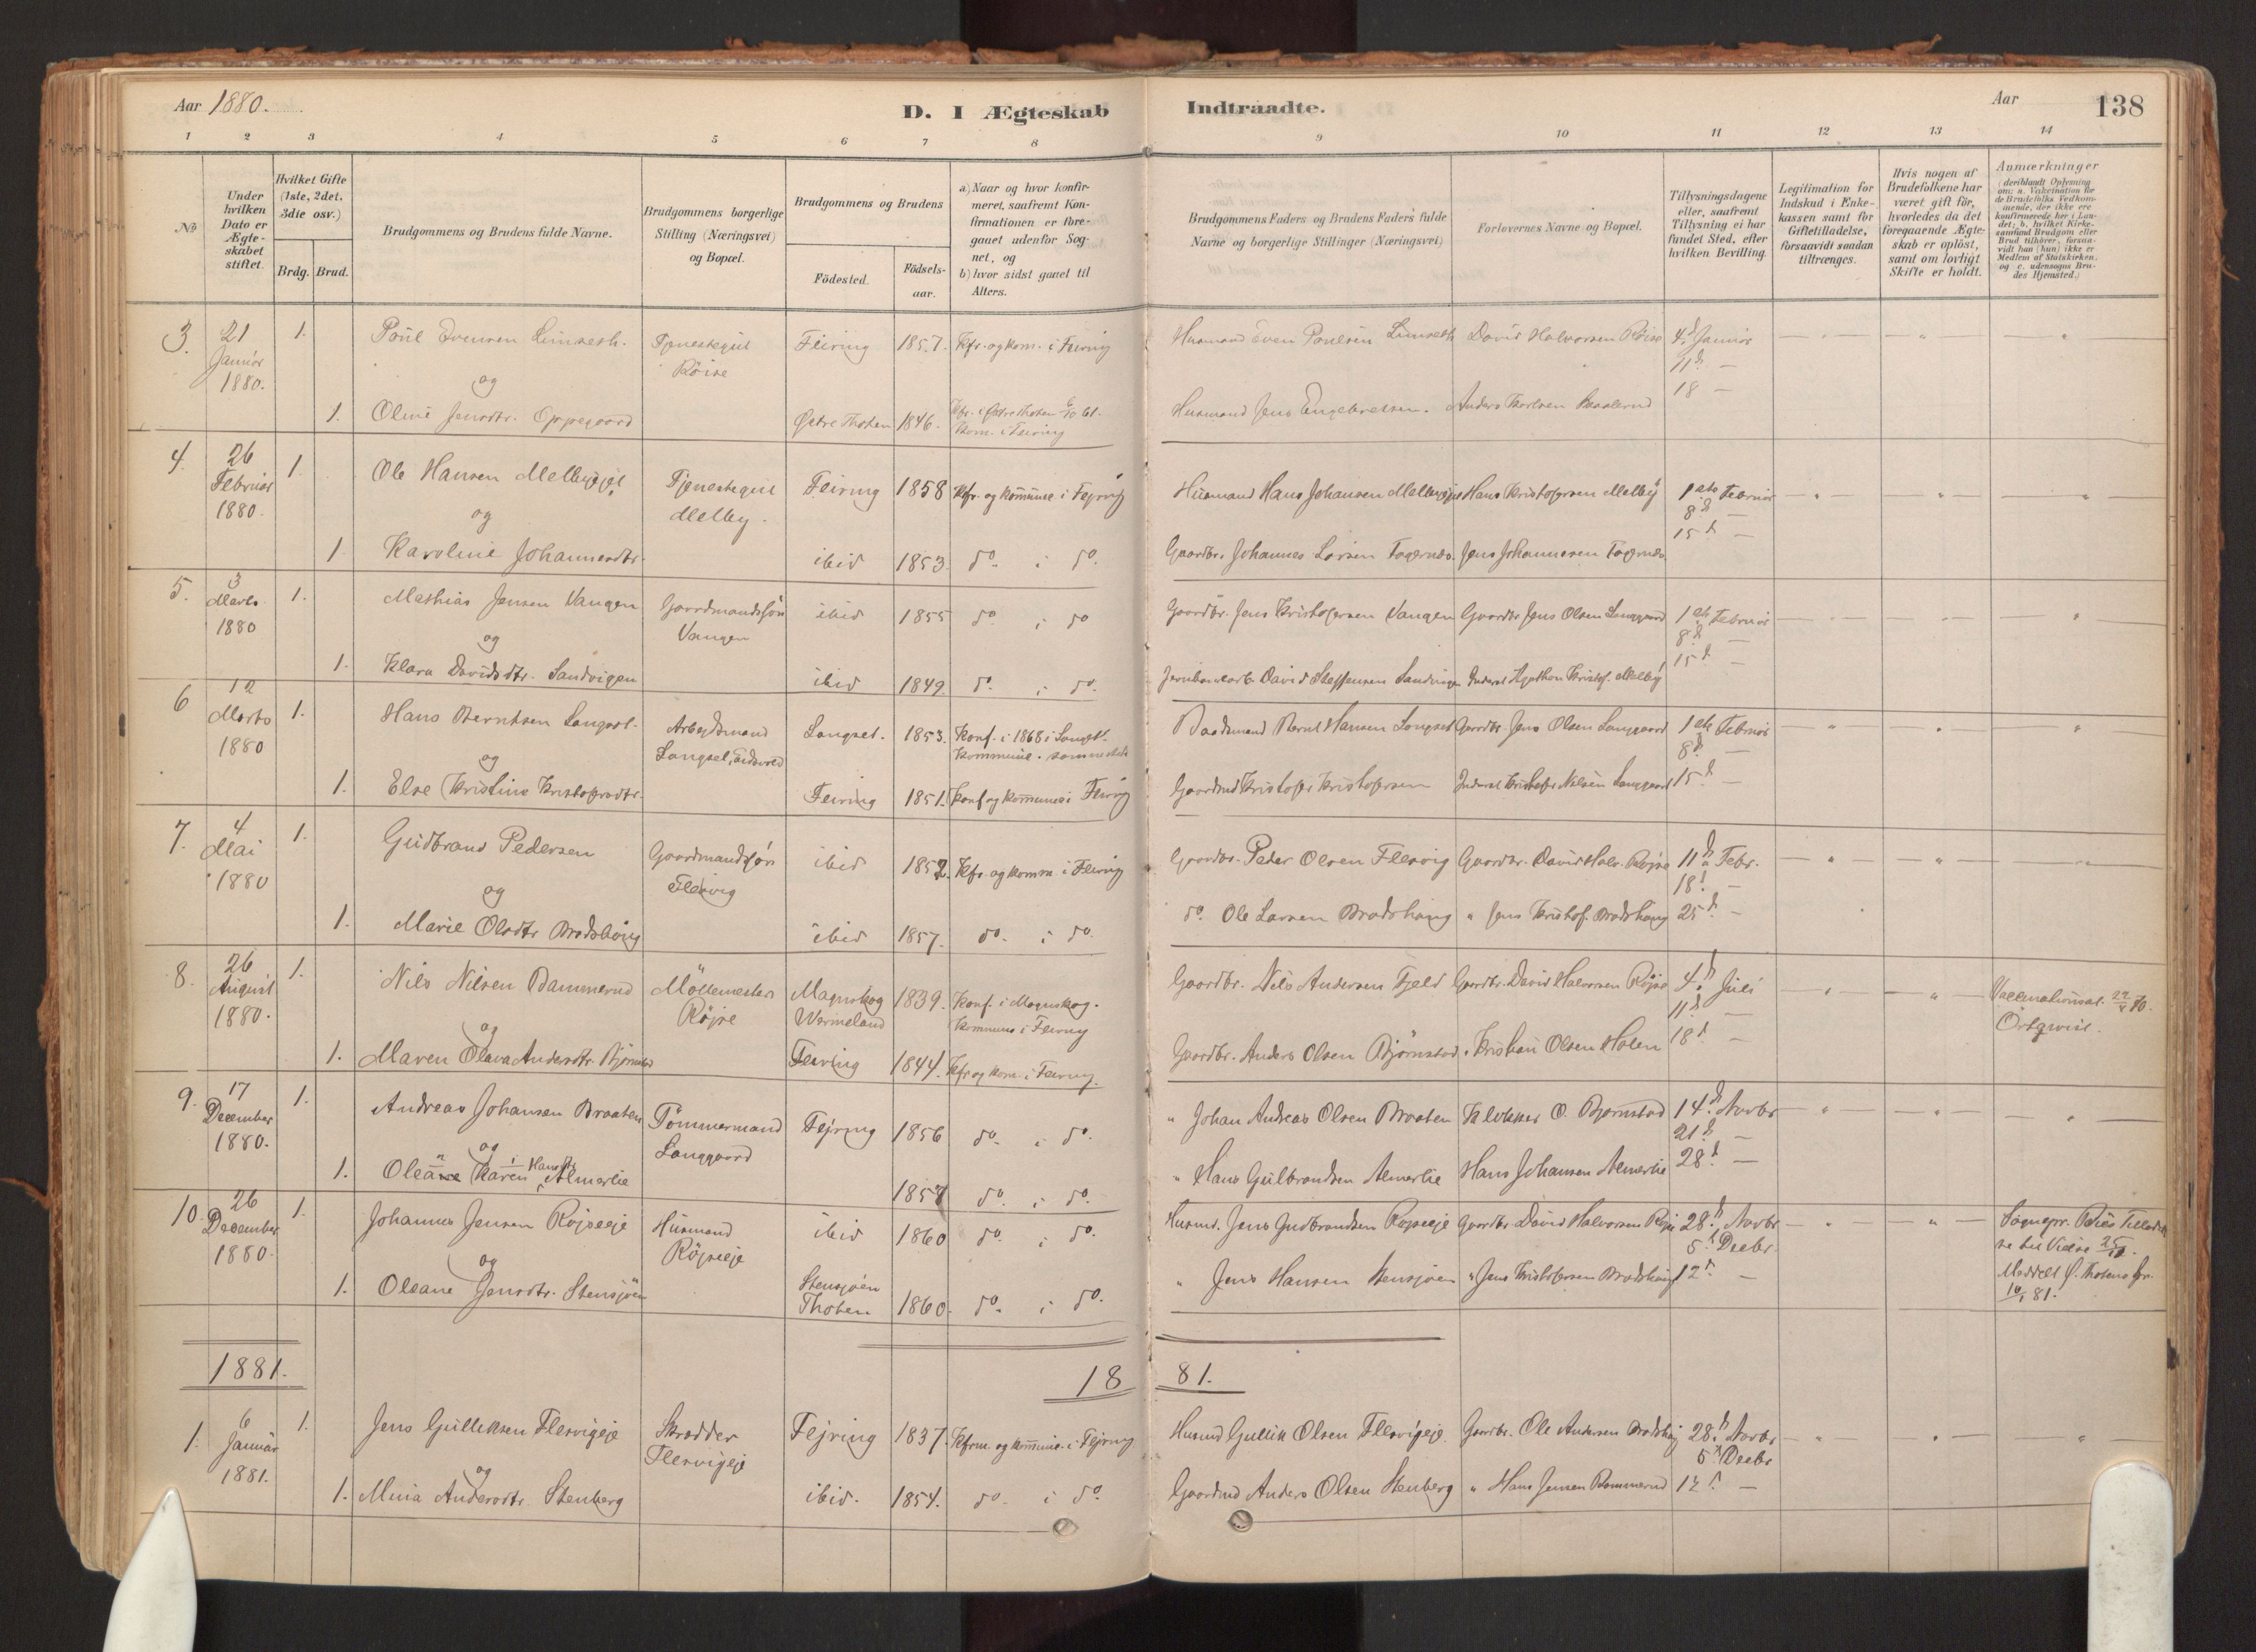 Aar 1880.
D. I Ægteskab Indtraadte.
Aar 138
1 2 3 4 5 6 7 8 9 10 11 12 13 14
No
Under hvilken Dato er Ægteskabet stiftet.
Hvilket Gifte (1ste, 2det, 3die osv.)
Brdg. Brud.
Brudgommens og Brudens fulde Navne.
Brudgommens borgerlige Stilling (Næringsvei) og Bopæl.
Brudgommens og Brudens
Födested.
Födsels-aar.
a) Naar og hvor konfirmeret, saafremt Konfirmationen er foregaaet udenfor Sognet, og
b) hvor sidst gaaet til Alters.
Brudgommens Faders og Brudens Faders fulde Navne og borgerlige Stillinger (Næringsvei)
Forlovernes Navne og Bopæl.
Tillysningsdagene eller, saafremt Tillysning ei har fundet Sted, efter hvilken Bevilling.
Legitimation for Indskud i Enkekassen samt for Giftetilladelse, forsaavidt saadan tiltrænges.
Hvis nogen af Brudefolkene har været gift för, hvorledes da det foregaaende Ægteskab er oplöst, samt om lovligt Skifte er holdt.
Anmærkninger
(deriblandt Oplysning om: a. Vakcination för de Brudefolks Vedkommende, der ikke ere konfirmerede her i Landet; b. hvilket Kirkesamfund Brudgom eller Brud tilhörer, forsaavidt han (hun) ikke er Medlem af Statskirken, og c. udensogns Brudes Hjemsted.)
3. 21 Januar 1880. 1. Paul Evensen Linseth. Tjenestegut Röise Feiring 1857. Kfr. og kom. i Feiring Husmand Even Paulsen Linseth David Halvorsen Röise 4de Januar
11te —
og
18 —
1. Oline Jensdtr. Oppegaard Østre Thoten 1846. Kfr. i Østre Thoten 6/10 61. Kom. i Feiring Husmand Jens Engebretsen. Anders
4. 26 Februar 1880. 1 Ole Hansen Melbyeje Tjenestegut Melby. Feiring 1858 Kfr. og kommune i Fejring Husmand Hans Johansen Melbyeje Hans Kristofersen Melby 1ste Februar
8de —
og
15de —
1 Karoline Johannesdtr. ibid 1853. do. i do. Gaardbr. Johannes Larsen Fagernes. Jens Johannesen Fagernes
5. 3 Marts 1880 1. Mathias Jensen Vangen Gaardmandssön Vangen ibid 1855 do. i do Gaardbr. Jens Kristofersen Vangen Gaardbr. Jens Olsen Langgaard 1ste Februar
8de —
og
15de —
1. Klara Davidsdtr. Sandvigen ibid 1849 do. i do. David Steffensen Sandvigen Agathon Kristof. Melby
6 12 Marts 1880 1. Hans Berntsen Langset. Arbeidsmand Langset, Eidsvold Langset. 1853. Konf. i 1868 i Langset. Kommune. sammesteds Baadsmand Bernt Hansen Langset Gaardbr. Jens Olsen Langgaard 1ste Februar
8de —
og
1. Else Kristine Kristofersdtr. Feiring 1851. Konf og kommune i Feiring Gaardmd Kristofer Kristofersen Kristofer Nilsen Langgaard 15de —
7. 4 Mai 1880 1. Gudbrand Pedersen Gaardmandssön Flesvig ibid 1852. Kfr. og komm i Feiring Gaardbr. Peder Olsen Flesvig Gaardbr. David Halv. Röjse 11te Febr.
18de
og
1. Marie Olsdtr Brodshaug ibid 1857. do. i do. do. Ole Larsen Brodshaug " Jens Kristof. Brodshaug 25de —
8. 26 August 1880. 1. Nils Nilsen Bammerud Möllemester Röjse Magnskog Wermeland 1839. Konf. i Magnskog. Kommune i Feiring Gaardbr. Nils Andersen Fjeld Gaardbr. David Halvorsen Röjse 4de Juli
11te —
Örtqvist.
og
18de —
1. Maren Olava Andersdtr. Björnstad Feiring 1844. Kfr og kom. i Feiring. Gaardbr. Anders Olsen Björnstad " Kristian Olsen Holen
9. 17 December 1880. 1. Andreas Johansen Braaten Tömmermand Langgaard Fejring 1856 do. i do. " Johan Andreas Olsen Braaten Klokker O. Bjørnstad 14de Novbr
21de —
og
1. Oleane Karen Hansdtr Almerlie 1857 do. i do. " Hans Gulbrandsen Almerlie Hans Johansen Almerlie 28de —
10. 26 December 1880. 1. Johannes Jensen Röjseeje Husmand Röjseeje ibid 1860 do. i do. Husmd. Jens Gudbrandsen Röjseeje Gaardbr. David Halvorsen Röjse 28de Novbr
5te Decbr.
Sognepr. Tilladelse til Vielse 25/10.
og
1. Oleane Jensdtr. Stensjöen Stensjöen Thoten 1860. do. i do. " Jens Hansen Stensjöen " Jens Kristofersen Brodshaug 12te —
Meddelt Ø. Thotens
10/1 81.
1881. 18 81.
1. 6 Januar 1881. 1. Jens Gulliksen Flesvigeje Skrædder Flesvigeje Fejring 1837. Kfrm. og kommune. i Fejring Husmd Gullik Olsen Flesvigeje. Gaardbr. Ole Andersen Brodshaug 28de Novbr
5te Decbr
og
1. Mina Andersdtr. Stenberg ibid. 1854. do. i do. Gaardmd Anders Olsen Stenberg " Hans Jensen Bammerud 12te —